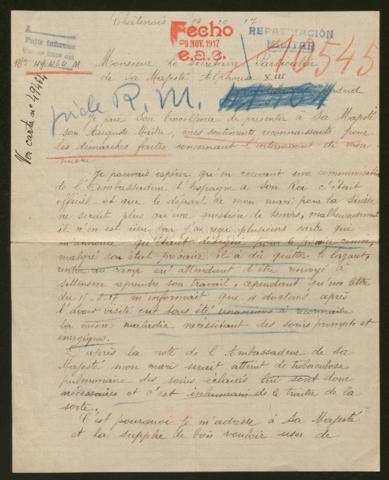 Châtenois 14 10 17
Fecho
9 NOV. 1917
e.a.e.
REPATRIACIÓN
MILITAR
10545
Voir carte no 49464
Monsieur le Secrétaire Particulier
de Sa Majesté Alphonse XIII
Madrid
R. M.
Je prie Son Excellence de présenter à Sa Majesté
son Auguste Maître, mes sentiments reconnaissants pour
les démarches faites concernant l'internement de mon
mari
Je pouvais espérer qu'en recevant une communication
de l'Ambassadeur d'Espagne à son Roi c'était
officiel et que le départ de mon mari pour la Suisse
ne serait plus qu'une question de temps, malheureusement
il n'en est rien car j'ai reçu plusieurs cartes qui
m'annoncent qu'étant désigné pour le
malgré son état précaire il a dû quitter le lazaret,
rentrer au camp en attendant d'être renvoyé à
reprendre son travail, cependant qu'une lettre
du m'informait que 4 docteurs après
l'avoir visité ont été unanimes à reconnaître
la même maladie nécessitant des soins prompts et
énergiques.
Après la note de l'Ambassadeur de Sa
Majesté mon mari serait atteint de tuberculose
pulmonaire des soins éclairés lui sont donc
nécessaires et c'est inhumain de le traiter de la
sorte.
C'est pourquoi je m'adresse à Sa Majesté
et la supplie de bien vouloir user de